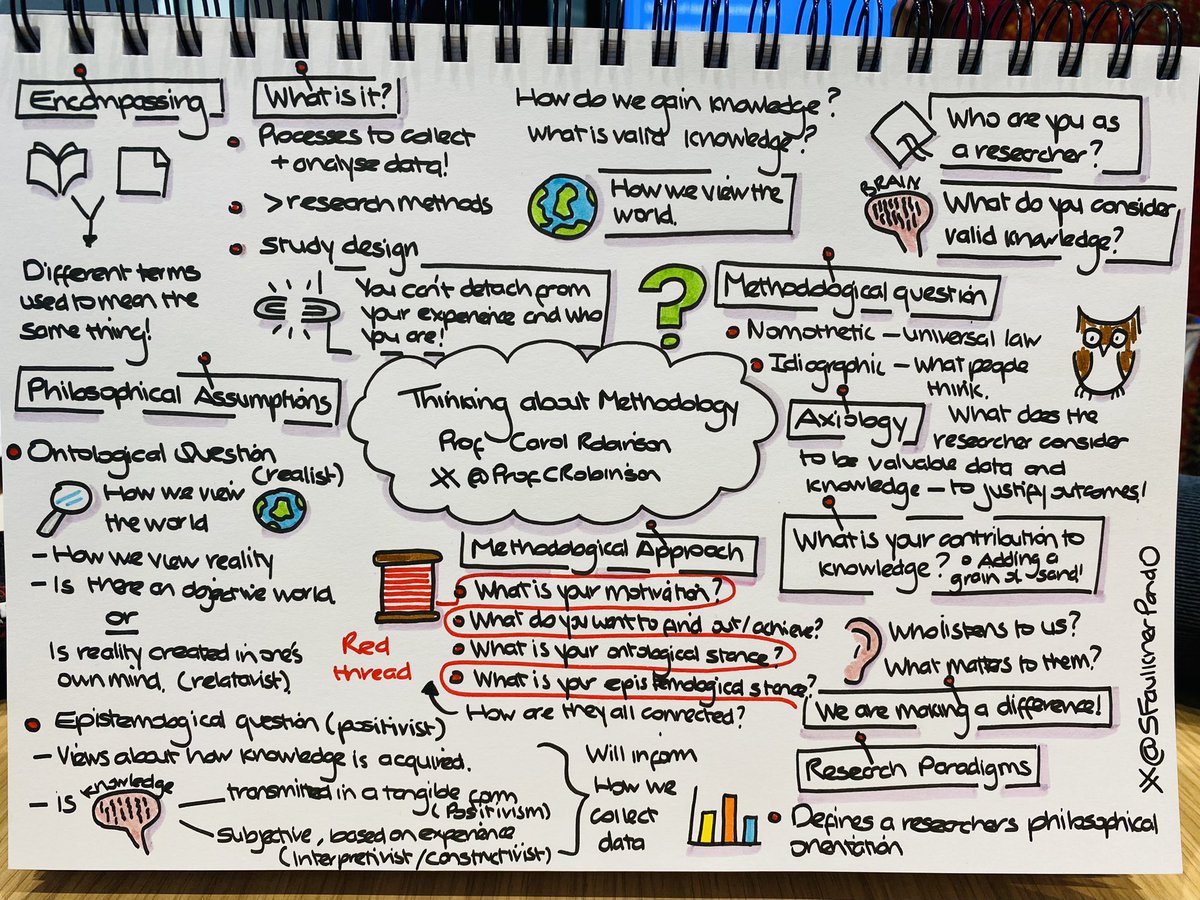 Encompassing
Different terms
used to mean the
same thing!
What is it?
Processes to collect
+ analyse data!
> research methods
Study design
You can't detach from
your experience and who
you are!
How do we gain knowledge?
What is valid knowledge?
How we view the
world.
Who are you as
a researcher?
BRAIN
What do you consider
valid knowledge?
Methodological question
Nomothetic – universal law
Idiographic – what people
think.
Axiology
What does the
researcher consider
to be valuable data and
knowledge – to justify outcomes!
What is your contribution to
knowledge? • Adding a
grain of sand!
Who listens to us?
What matters to them?
We are making a difference!
Research Paradigms
Defines a researchers philosophical
orientation
Thinking about Methodology
Prof Carol Robinson
X @ProfCRobinson
Philosophical Assumptions
Ontological Question
(realist)
How we view
the world
– How we view reality
– Is there an objective world
or
Is reality created in one's
own mind. (relatavist)
Epistemological question (positivist)
– Views about how knowledge is acquired.
– is knowledge
transmitted in a tangible form
(Positivism)
Subjective, based on experience
(interpretivist/constructivist)
Will inform
How we
collect
data
Methodological Approach
What is your motivation?
What do you want to find out/achieve?
What is your ontological stance?
What is your epistemological stance?
How are they all connected?
Red
thread
X @SFaulknerPandO